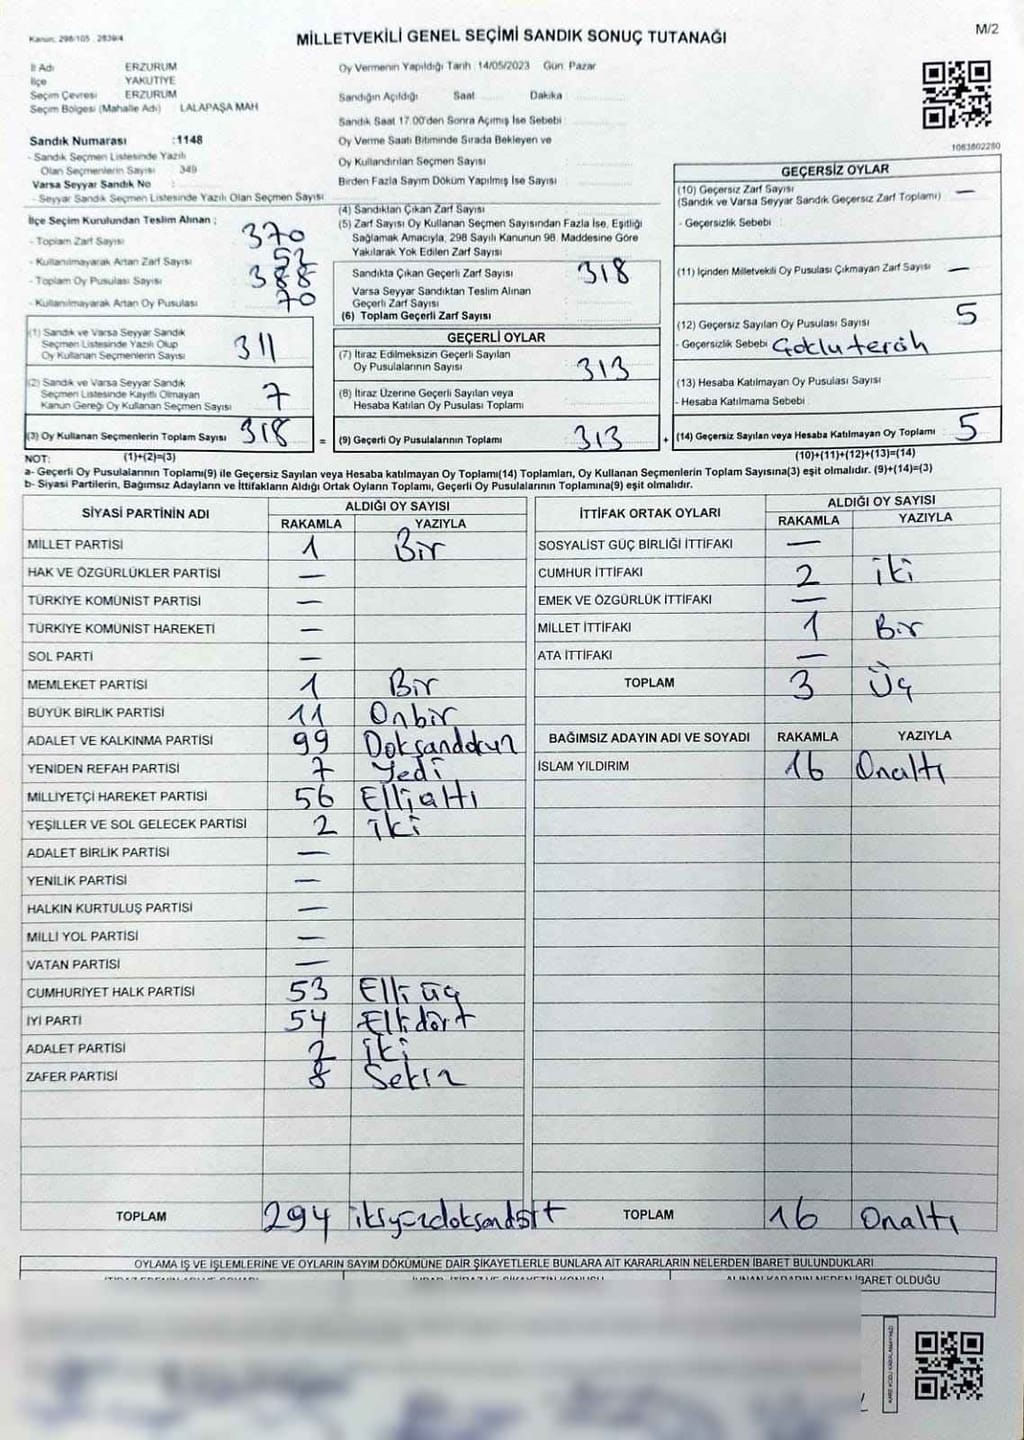 Kanun: 298/105 . 2839/4
MİLLETVEKİLİ GENEL SEÇİMİ SANDIK SONUÇ TUTANAĞI
M/2
İl Adı ERZURUM
İlçe YAKUTİYE
Seçim Çevresi ERZURUM
Seçim Bölgesi (Mahalle Adı) LALAPAŞA MAH
Oy Vermenin Yapıldığı Tarih :14/05/2023 Gün: Pazar
Sandığın Açıldığı Saat Dakika
Sandık Saat 17.00'den Sonra Açımış İse Sebebi
Oy Verme Saati Bitiminde Sırada Bekleyen ve
Oy Kullandırılan Seçmen Sayısı
Birden Fazla Sayım Döküm Yapılmış İse Sayısı
1083802280
Sandık Numarası :1148
- Sandık Seçmen Listesinde Yazılı
Olan Seçmenlerin Sayısı 349
Varsa Seyyar Sandık No
- Seyyar Sandık Seçmen Listesinde Yazılı Olan Seçmen Sayısı
İlçe Seçim Kurulundan Teslim Alınan ;
- Toplam Zarf Sayısı 370
- Kullanılmayarak Artan Zarf Sayısı 52
- Toplam Oy Pusulası Sayısı 388
- Kullanılmayarak Artan Oy Pusulası 70
(1) Sandık ve Varsa Seyyar Sandık
Seçmen Listesinde Yazılı Olup
Oy Kullanan Seçmenlerin Sayısı 311
(2) Sandık ve Varsa Seyyar Sandık
Seçmen Listesinde Kayıtlı Olmayan
Kanun Gereği Oy Kullanan Seçmen Sayısı 7
(3) Oy Kullanan Seçmenlerin Toplam Sayısı 318
(4) Sandıktan Çıkan Zarf Sayısı
(5) Zarf Sayısı Oy Kullanan Seçmen Sayısından Fazla İse, Eşitliği
Sağlamak Amacıyla, 298 Sayılı Kanunun 98. Maddesine Göre
Yakılarak Yok Edilen Zarf Sayısı
Sandıkta Çıkan Geçerli Zarf Sayısı 318
Varsa Seyyar Sandıktan Teslim Alınan
Geçerli Zarf Sayısı
(6) Toplam Geçerli Zarf Sayısı
GEÇERLİ OYLAR
(7) İtiraz Edilmeksizin Geçerli Sayılan
Oy Pusulalarının Sayısı 313
(8) İtiraz Üzerine Geçerli Sayılan veya
Hesaba Katılan Oy Pusulası Toplamı
= (9) Geçerli Oy Pusulalarının Toplamı 313
GEÇERSİZ OYLAR
(10) Geçersiz Zarf Sayısı
(Sandık ve Varsa Seyyar Sandık Geçersiz Zarf Toplamı) —
- Geçersizlik Sebebi
(11) İçinden Milletvekili Oy Pusulası Çıkmayan Zarf Sayısı —
(12) Geçersiz Sayılan Oy Pusulası Sayısı 5
- Geçersizlik Sebebi
(13) Hesaba Katılmayan Oy Pusulası Sayısı
- Hesaba Katılmama Sebebi
+ (14) Geçersiz Sayılan veya Hesaba Katılmayan Oy Toplamı 5
NOT: (1)+(2)=(3)
(10)+(11)+(12)+(13)=(14)
a- Geçerli Oy Pusulalarının Toplamı(9) ile Geçersiz Sayılan veya Hesaba katılmayan Oy Toplamı(14) Toplamları, Oy Kullanan Seçmenlerin Toplam Sayısına(3) eşit olmalıdır. (9)+(14)=(3)
b- Siyasi Partilerin, Bağımsız Adayların ve İttifakların Aldığı Ortak Oyların Toplamı, Geçerli Oy Pusulalarının Toplamına(9) eşit olmalıdır.
SİYASİ PARTİNİN ADI ALDIĞI OY SAYISI
RAKAMLA YAZIYLA
MİLLET PARTİSİ 1 Bir
HAK VE ÖZGÜRLÜKLER PARTİSİ —
TÜRKİYE KOMÜNİST PARTİSİ —
TÜRKİYE KOMÜNİST HAREKETİ —
SOL PARTİ —
MEMLEKET PARTİSİ 1 Bir
BÜYÜK BİRLİK PARTİSİ 11 Onbir
ADALET VE KALKINMA PARTİSİ 99 Doksandokuz
YENİDEN REFAH PARTİSİ 7 Yedi
MİLLİYETÇİ HAREKET PARTİSİ 56 Ellialtı
YEŞİLLER VE SOL GELECEK PARTİSİ 2 iki
ADALET BİRLİK PARTİSİ —
YENİLİK PARTİSİ —
HALKIN KURTULUŞ PARTİSİ —
MİLLİ YOL PARTİSİ —
VATAN PARTİSİ —
CUMHURİYET HALK PARTİSİ 53 Elli üç
İYİ PARTİ 54 Elli dört
ADALET PARTİSİ 2 iki
ZAFER PARTİSİ 8 Sekiz
TOPLAM 294 ikiyüzdoksandört
İTTİFAK ORTAK OYLARI ALDIĞI OY SAYISI
RAKAMLA YAZIYLA
SOSYALİST GÜÇ BİRLİĞİ İTTİFAKI —
CUMHUR İTTİFAKI 2 iki
EMEK VE ÖZGÜRLÜK İTTİFAKI —
MİLLET İTTİFAKI 1 Bir
ATA İTTİFAKI —
TOPLAM 3 Üç
BAĞIMSIZ ADAYIN ADI VE SOYADI RAKAMLA YAZIYLA
İSLAM YILDIRIM 16 Onaltı
TOPLAM 16 Onaltı
OYLAMA İŞ VE İŞLEMLERİNE VE OYLARIN SAYIM DÖKÜMÜNE DAİR ŞİKAYETLERLE BUNLARA AİT KARARLARIN NELERDEN İBARET BULUNDUKLARI
İBARET OLDUĞU